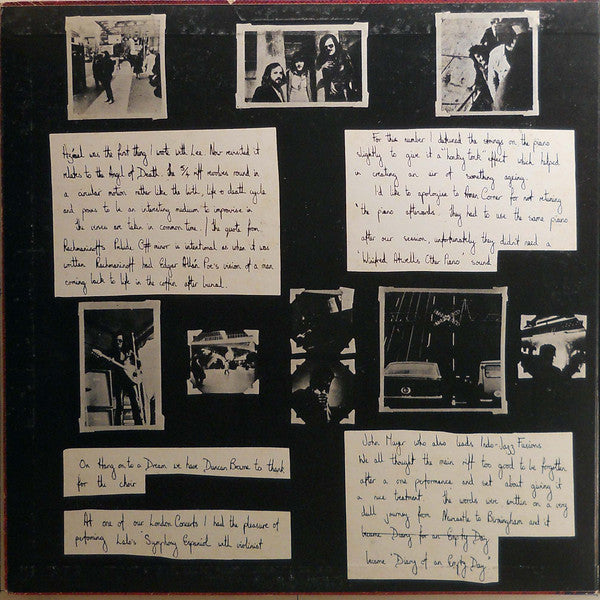 Azrael was the first thing I wrote with Lee. Now revisited it
relates to the Angel of Death. The 5/4 riff revolves round in
a circular motion rather like the birth, life & death cycle
and proves to be an interesting medium to improvise in
the verses are taken in common time. / the quote from
Rachmaninoff's Prelude C# minor is intentional as when it was
written Rachmaninoff had Edgar Allan Poe's vision of a man
coming back to life in the coffin after burial.
For this number I detuned the strings on the piano
slightly to give it a "honky tonk" effect which helped
in creating an air of something ageing.
I'd like to apologise to Corner for not retuning
the piano afterwards. They had to use the same piano
after our session, unfortunately they didn't need a
'Winifred Atwell's Other Piano' sound
On Hang on to a Dream we have Duncan Browne to thank
for the choir
At one of our London Concerts I had the pleasure of
performing Lalo's 'Symphony Espaniol with violinist
John Mayer who also leads Indo-Jazz Fusions.
We all thought the main riff too good to be forgotten
after a one performance and set about giving it
a nice treatment. the words were written on a very
dull journey from Newcastle to Birmingham and it
became Diary for an Empty Day
became 'Diary of an Empty Day'